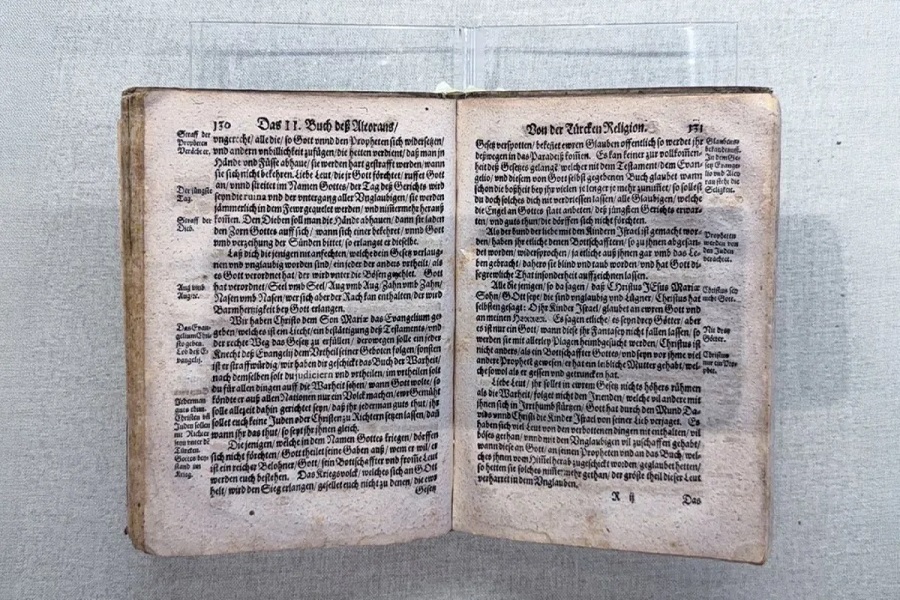 130 Das II. Buch deß Alcorans/
Straff der
Propheten
Verächter.
vngerecht/ alle die/ so Gott vnnd den Propheten sich widersetzen/
vnd andern vnbillichkeit zufügen/ die hetten verdient/ daß man jn
Hände vnd Füsse abhaue/ sie werden hart gestrafft werden/ wann
sie sich nicht bekehren. Liebe Leut/ die jr Gott förchtet/ ruffet Gott
Der jüngste
Tag.
an/ vnnd streitet im Namen Gottes/ der Tag deß Gerichts wird
seyn die ruina vnd der vntergang aller Vnglaubigen/ sie werden
sämmerlich in dem Fewr gequelet werden/ vnd nimmermehr herauß
Straff der
Dieb.
kommen. Den Dieben soll man die Hände abhauen/ dann sie laden
den Zorn Gottes auff sich/ wann sich einer bekehret/ vnnd Gott
vmb verzeihung der Sünden bittet/ so erlanget er dieselbe.
Laß dich die jenigen nit anfechten/ welche dein Gesetz verlaug-
nen vnd vnglaubig worden sind/ ein jeder der anders vrtheilt/ als
es Gott verordnet hat/ der wird vnter die Bösen gezehlet. Gott
Aug vmb
Auge.
hat verordnet/ Seel vmb Seel/ Aug vmb Aug/ Zahn vmb Zahn/
Nasen vmb Nasen/ wer sich aber der Rach kan enthalten/ der wird
Barmhertzigkeit bey Gott erlangen.
Das Evan-
gelium Chri-
sto geben.
Lob deß E-
vangelij.
Wir haben Christo dem Son Mariæ das Evangelium ge-
geben/ welches ist ein Liecht/ ein bestättigung deß Testaments/ vnd
der rechte Weg das Gesetz zu erfüllen/ derowegen solle ein jeder
Knecht deß Evangelij dem Vrtheil seiner Geboten folgen/ sonsten
ist er straffwürdig/ wir haben dir geschickt das Buch der Warheit/
nach demselben solt du judiciern vnd vrtheilen/ im vrtheilen solt
du für allen dingen auff die Warheit sehen/ wann Gott wolte/ so
Jederman
guts thun.
Christen vñ
Juden sollen
nit Richter
seyn vnter dē
Türcken.
Gottes bey-
stand im
Krieg.
köndte er auß allen Nationen nur ein Volck machen/ ewr Gemüht
solle allezeit dahin gerichtet seyn/ daß jhr jederman guts thut/ jhr
sollet euch keine Juden oder Christen zu Richtern setzen lassen/ daß
wann jhr das thut/ so seyt jhr jhnen gleich.
Die jenigen/ welche in dem Namen Gottes kriegen/ dörffen
sich nicht förchten/ Gott theilet seine Gaben auß/ wem er wil/ er
ist ein reicher Belohner/ Gott/ sein Bottschaffter vnd fromme Leut
werden euch bestehen. Das Kriegsvolck/ welches sich an GOtt
helt/ wird den Sieg erlangen/ gesellet euch nicht zu denen/ die ewr
Gesetz
Von der Türcken Religion. 131
Gesetz verspotten/ bekeñet ewren Glauben offentlich so werdet jhr
deßwegen in das Paradeiß kommen. Es kan keiner zur vollkommen-
heit deß Gesetzes gelangen/ welcher nit dem Testament/ dem Evan-
gelio/ vnd diesem von Gott selbst gegebenen Buch glaubet/ wann
schon die boßheit bey jhr vielen je lenger je mehr zunimmet/ so sollest
du doch solches dich nit verdriessen lassen/ alle Glaubigen/ welche
die Engel an Gottes statt anbeten/ deß jüngsten Gerichts erwar-
ten/ vnd guts thun/ die dörffen sich nicht förchten.
Propheten
worden von
den Juden
verachtet.
Als der bund der liebe mit den Kindern Israel ist gemacht wor-
den/ haben sie etliche denen Bottschafftern/ so zu jhnen abgesan-
det worden/ widersprochen/ ja etliche auß jhnen gar vmb das Le-
ben gebracht/ dahero sie blind vnd taub worden/ vnd hat Gott di-
se grewliche That in sonderheit auffzeichnen lassen.
Christus sey
nicht Gott.
Alle die jenigen/ so da sagen/ daß Christus JEsus Mariæ
Sohn/ GOtt sey/ die sind vnglaubig vnd Lügner. Christus hat
selbsten gesagt: O jhr Kinder Israel/ glaubet an ewren Gott vnd
Nit drey
Götter.
an meinen Herren. Es sagen etliche/ es seyn drey Götter/ aber
es ist nur ein Gott/ wann diese jhr Fantasey nicht fallen lassen/ so
werden sie mit allerley Plagen heimbgesucht werden. Christus ist
Christus
nur ein Pro-
phet.
nicht anders/ als ein Bottschaffter Gottes/ vnd seyn vor jhme viel
andere Propheten gewesen/ er hat ein leibliche Mutter gehabt/ wel-
che sowol als er gessen vnd getruncken hat.
Liebe Leut/ jhr sollet in ewrem Gesetz nichts höhers rühmen
als die Warheit/ folget nicht den Irrenden/ welche vil andere mit
jhnen sich in Irrthumb stürtzen/ Gott hat durch den Mund Da-
vids vnnd Christi die Kinder Israel von seiner Lieb verjaget. Es
haben sich viel Leut von den verbottenen dingen nit enthalten/ vil
böses gethan/ vnnd mit den Vnglaubigen vil zuschaffen gehabt/
wann diese an Gott/ an seinen Propheten vnd an das Buch/ wel-
ches jhnen vom Himmel herab zugeschickt worden/ geglaubet hetten/
so hetten sie solches nimmermehr gethan/ der gröste theil dieser Leut
verharret in dem Vnglauben.
R ij Das